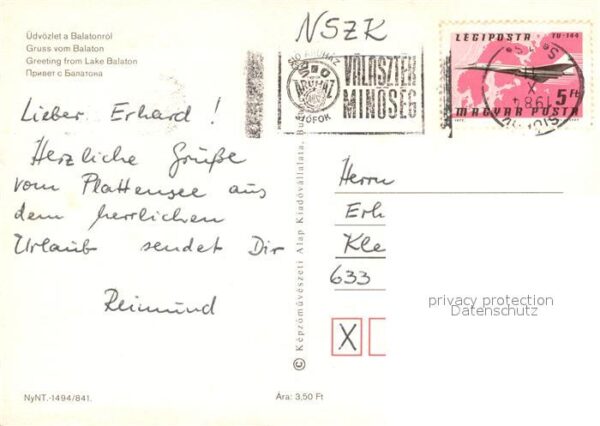 Üdvözlet a Balatonról
Gruss vom Balaton
Greeting from Lake Balaton
Привет с Балатона
NSZK
SIÓ ÁRUHÁZ
SIÓFOK
VÁLASZTÉK
MINŐSÉG
LÉGIPOSTA TU-144
5 Ft
MAGYAR POSTA
1984
Lieber Erhard!
Herzliche Grüße
vom Plattensee aus
dem herrlichen
Urlaub sendet Dir
Reimund
© Képzőművészeti Alap Kiadóvállalata,
Herrn
Erh
Kle
633
X
privacy protection
Datenschutz
NyNT.-1494/841.
Ára: 3,50 Ft